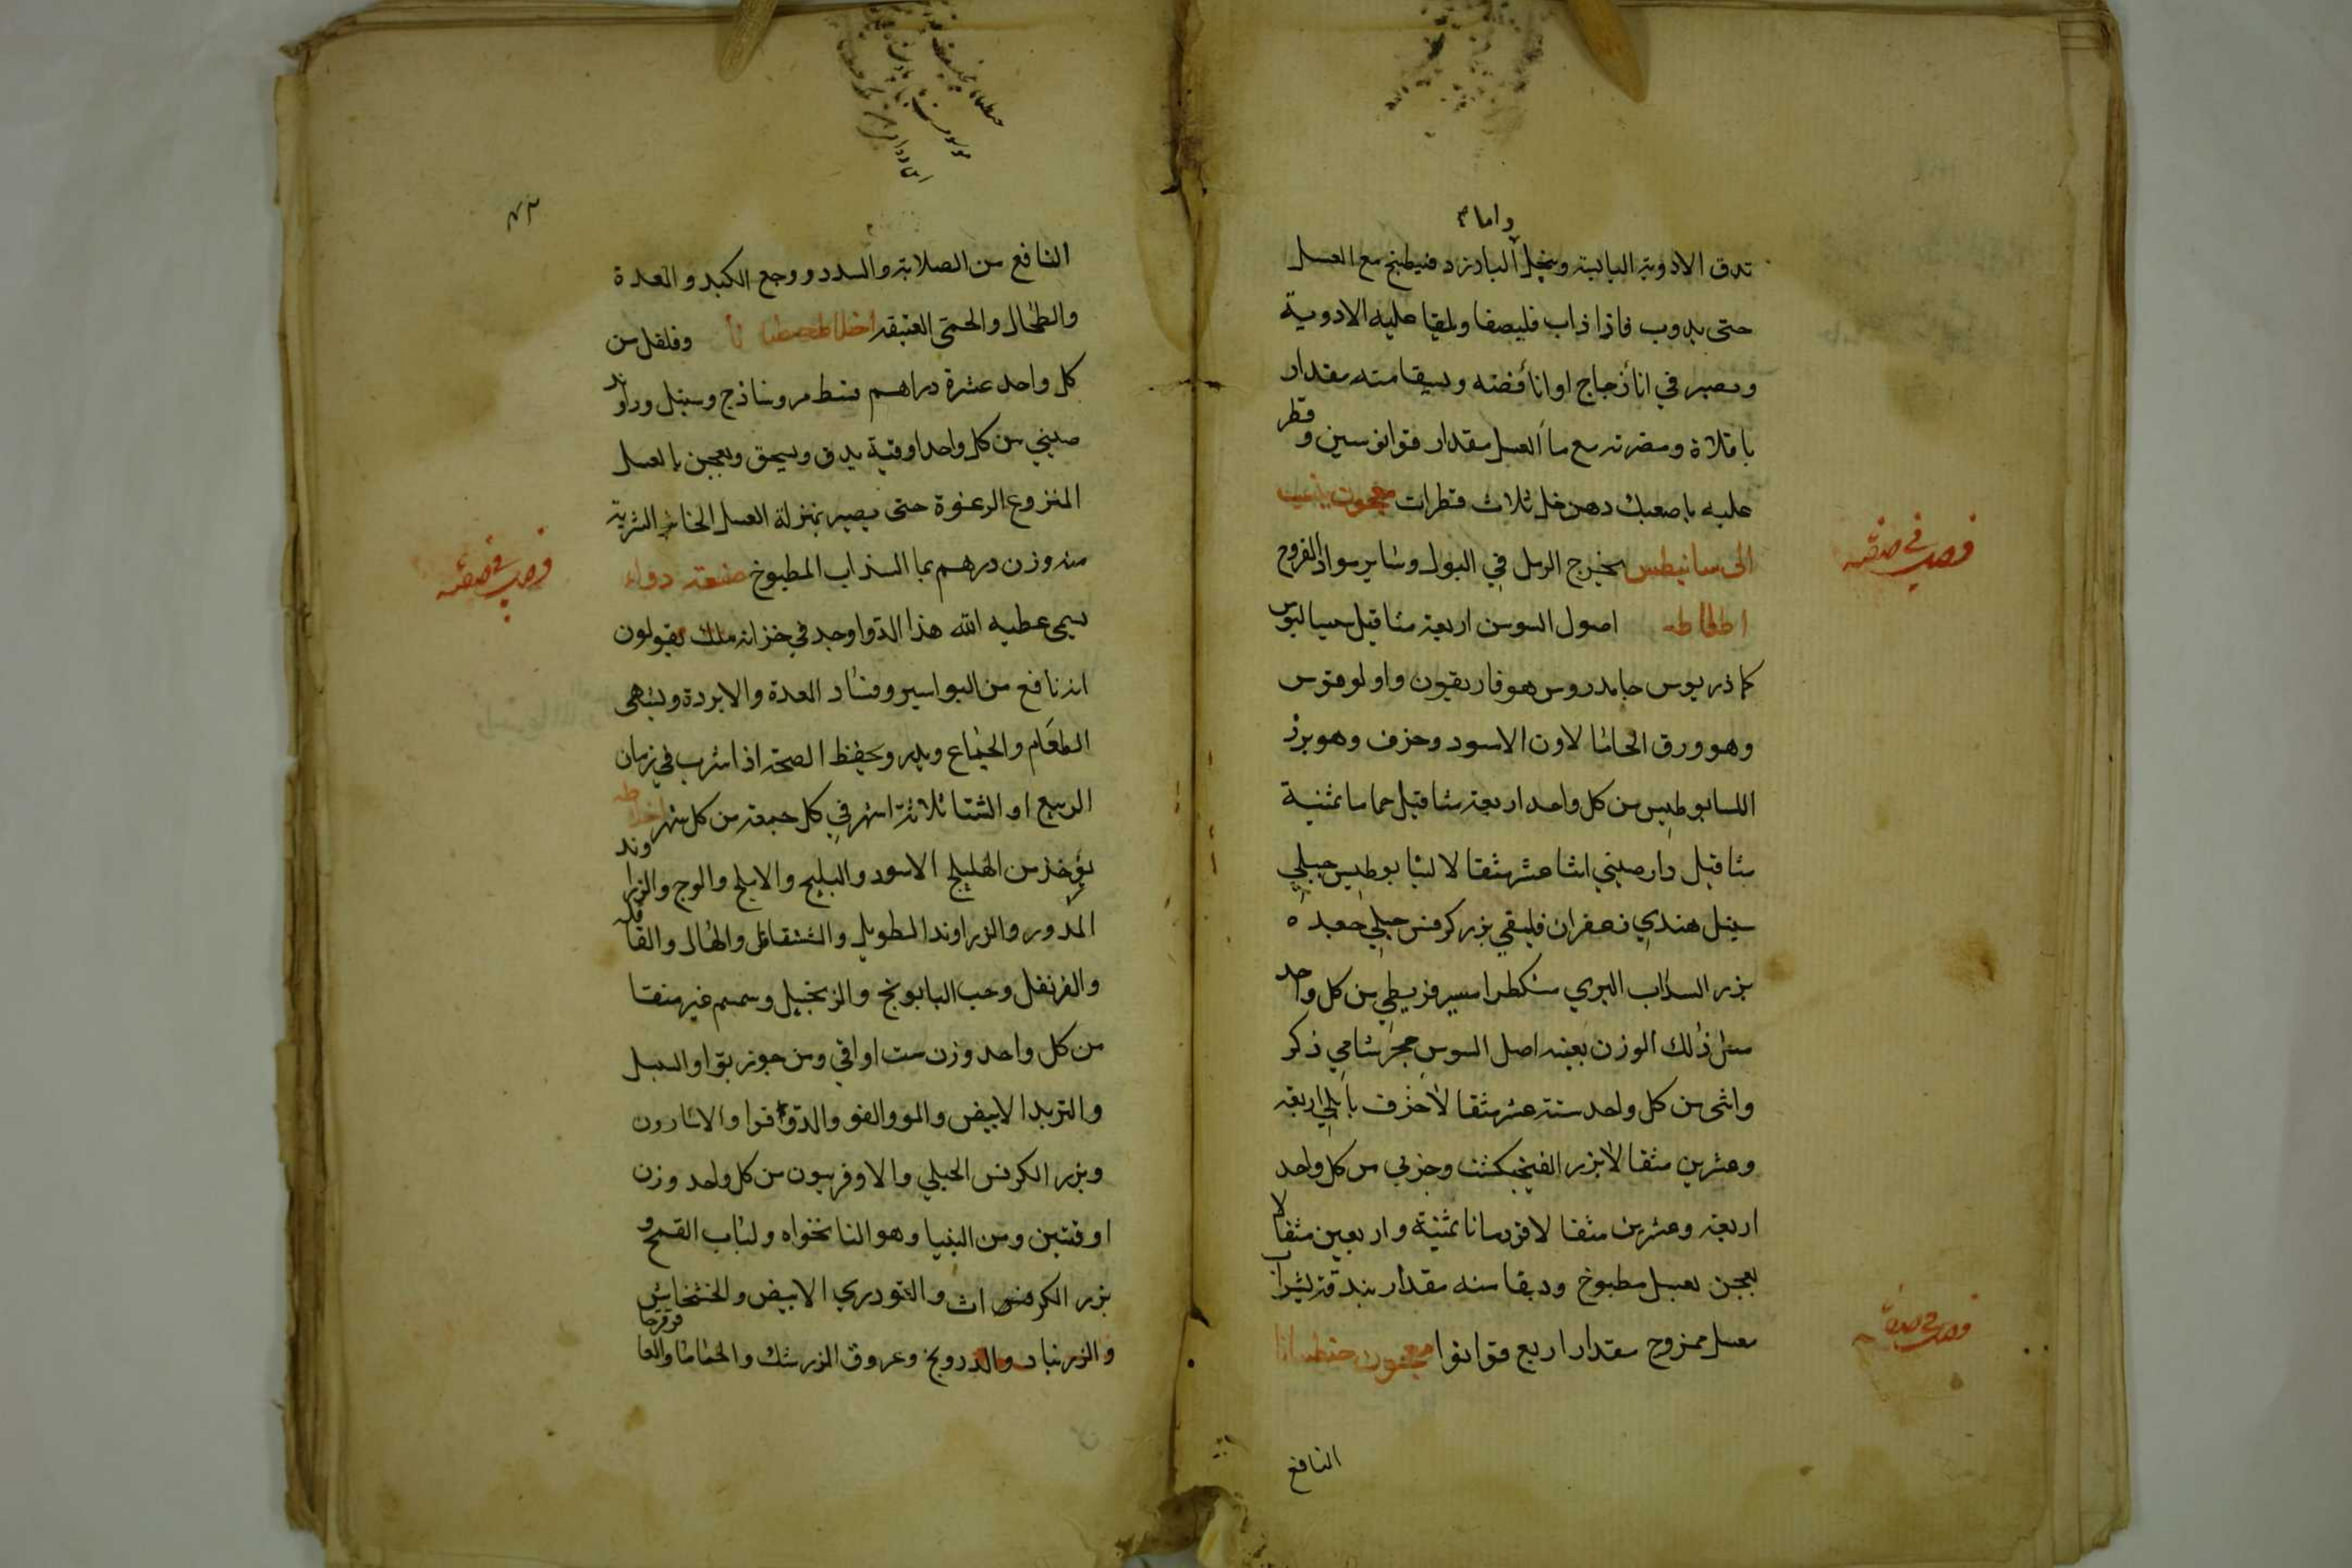 واما
تدق الادوية اليابسة وينخل البارزد فيطبخ مع العسل
حتى يدوب فاذا ذاب فليصفا ويلقيا عليه الادوية
وبصير في انأ زجاج او انأ فضه ويسقا منه مقدار
باقلاة ومضرته مع مأ العسل مقدار قوانوسين وقطر
عليه باصعبك دهن خل ثلاث قطرات معجون ينسب
الى سانيطس يخرج الرمل في البول وساير سواد القروح
اخلاطه اصول السوسن اربعة مثاقيل سيساليوس
كماذريوس جامدروس هوفاريقيون واولوموس
وهو ورق الحاشا لاون الاسود وحزف وهو برز
اللسابوطيس من كل واحد اربعة مثاقيل حماما ثمنية
مثاقيل دارصيني اثنا عشر مثقالا لبنابوطيس جبلي
سنبل هندي زعفران فليقي بزر كرفس جبلي جعده
بزر السداب البري مشكطرامسير قريطي من كل واحد
مثل ذلك الوزن بعينه اصل السوس حجر شامي ذكر
وانثى من كل واحد ستة عشر مثقالا حزف بابلي اربعة
وعشرين مثقالا بزر الفنجنكشت وجزبي من كل واحد
اربعة وعشرين مثقالا قردمانا ثمنية واربعين مثقالا
يعجن بعسل مطبوخ وديقا منه مقدار بندقة بشراب
معسل ممزوج مقدار اربع قوانوا معجون جنطيانا
فصل في صفة
فصل في صفة
النافع
النافع من الصلابة والسدد ووجع الكبد والمعدة
والطحال والحمى العتيقه اخلاطه جنطيانا وفلفل من
كل واحد عشرة دراهم قسط مر وساذج وسنبل وراوند
صيني من كل واحد اوقية يدق ويسحق ويعجن بالعسل
المنزوع الرغوة حتى يصير بمنزلة العسل الخاثر الشربة
منه وزن درهم بما السذاب المطبوخ صنعة دواء
يسمى عطيه الله هذا الدوا وجد في خزانة ملك يقولون
انه نافع من البواسير وفساد المعدة والابردة ويشهى
الطعام والجماع ويدر ويحفظ الصحة اذا شرب في زمان
الربيع او الشتا ثلاثة اشهر في كل جمعة من كل شهر اخلاطه
يؤخذ من الهليلج الاسود والبليج والابلج والوج والزراوند
المدور والزراوند الطويل والشقاقل والهال والقاقله
والقرنفل وحب البابونج والزنجبيل وسمسم غير منقا
من كل واحد وزن ست اواقي ومن جوز بوا والسنبل
والتربد الابيض والمو والفو والدوقوا والاسارون
وبزر الكرفس الجبلي والاوفربيون من كل واحد وزن
اوقتين ومن النيا وهو النانخواه ولباب القمح و
بزر الكرفس والتودري الابيض والخشخاش
والزرنباد والدرونج وعروق الزرشك والحماما والعاقرقرحا
فصل في صفة